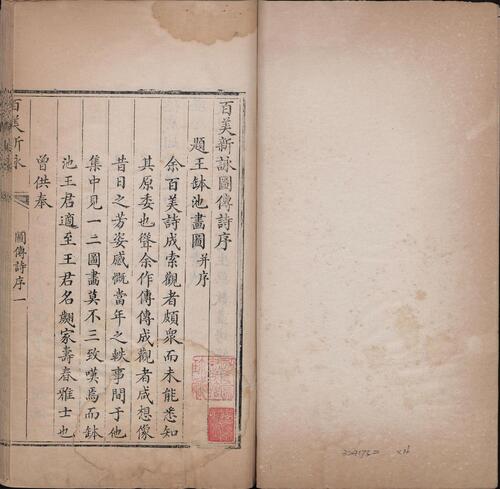 百美新詠圖傳詩序
題王缽池畫圖并序
余百美詩成索觀者頗衆而未能悉知
其原委也聳余作傳傳成觀者咸想像
昔日之芳姿感慨當年之軼事間于他
集中見一二圖畫莫不三致嘆焉而缽
池王君適至王君名翽家壽春雅士也
曾供奉
百美新詠
圖傳詩序一